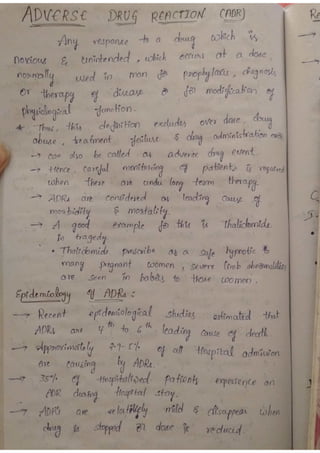 ADVERSE DRUG REACTION (ADR)
Any response to a drug which is
noxious & Unintended, which occurs at a dose
normally used in man for prophylaxis, diagnosis
or therapy of disease or for modification of
physiological function.
* Thus, this definition excludes over dose, drug
abuse, treatment failure & drug administration
→ can also be called as adverse drug event.
→ Hence, careful monitoring of patients is required
when there are under long term therapy.
→ ADRs are considered as leading cause of
morbidity & mortality.
→ A good example for this is Thalidomide
tragedy
• Thalidomide prescribe as a safe hypnotic to
many pregnant women, severe limb abnormalities
are seen in babies to those women.
Epidemiology of ADRs :
→ Recent epidemiological studies estimated that
ADRs are 4th to 6th leading cause of death
→ Approximately 5% of all Hospital admission
are causing by ADRs.
→ 35% of Hospitalised patients experience an
ADR during Hospital stay.
→ ADRs are relatively mild & disappear when
drug is stopped or dose is reduced.